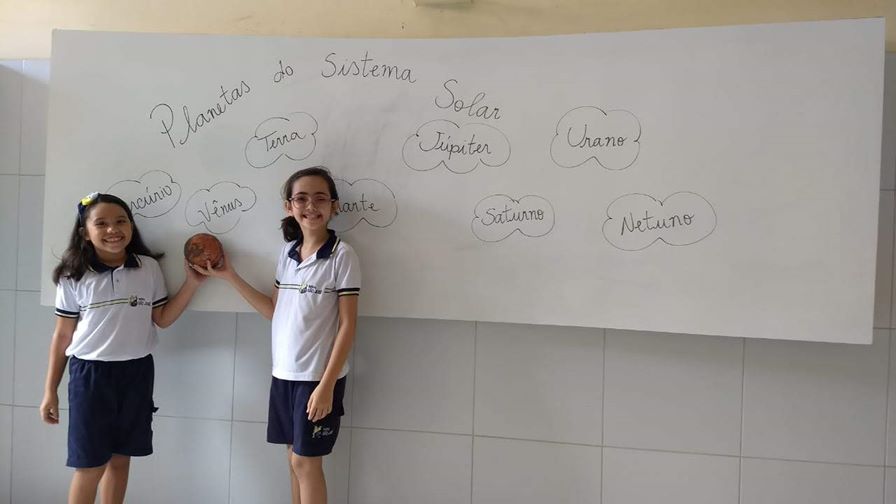 Planetas do Sistema Solar
Terra
Júpiter
Urano
Vênus
Saturno
Netuno